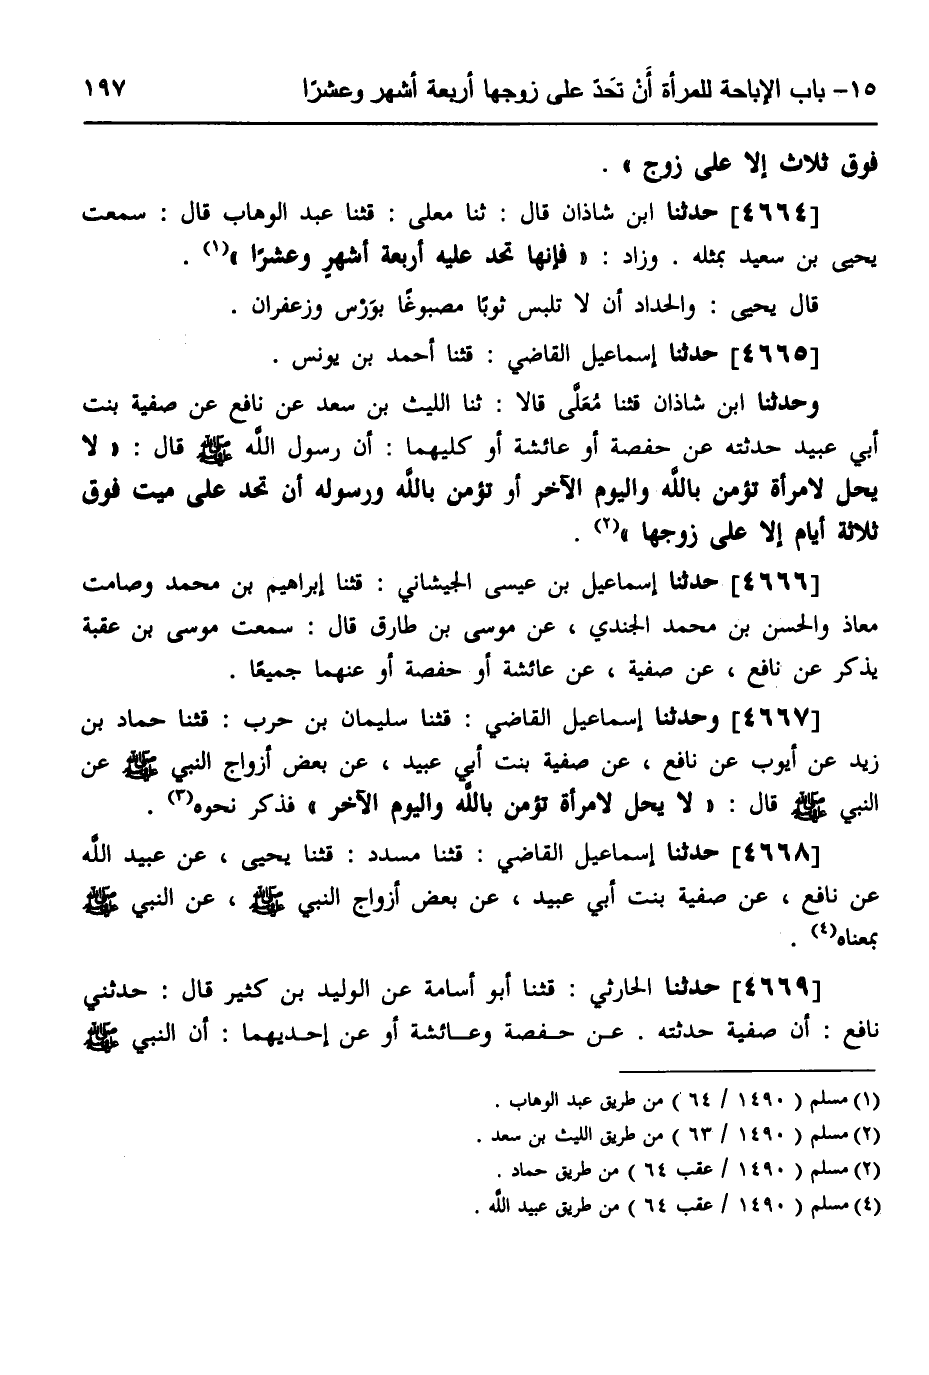 ١٥- باب الإباحة للمرأة أَنْ تَحَدّ على زوجها أربعة أشهر وعشرًا ١٩٧
فوق ثلاث إلا على زوج » .
[٤٦٦٤] حدثنا ابن شاذان قال : ثنا معلى : قثنا عبد الوهاب قال : سمعت
يحيى بن سعيد بمثله . وزاد : « فإنها تحد عليه أربعة أشهرٍ وعشرًا »(١) .
قال يحيى : والحداد أن لا تلبس ثوبًا مصبوغًا بوَرْس وزعفران .
[٤٦٦٥] حدثنا إسماعيل القاضي : قثنا أحمد بن يونس .
وحدثنا ابن شاذان قثنا مُعَلَّى قالا : ثنا الليث بن سعد عن نافع عن صفية بنت
أبي عبيد حدثته عن حفصة أو عائشة أو كليهما : أن رسول اللَّه ﷺ قال : « لا
يحل لامرأة تؤمن باللَّه واليوم الآخر أو تؤمن باللَّه ورسوله أن تحد على ميت فوق
ثلاثة أيام إلا على زوجها »(٢) .
[٤٦٦٦] حدثنا إسماعيل بن عيسى الجيشاني : قثنا إبراهيم بن محمد وصامت
معاذ والحسن بن محمد الجندي ، عن موسى بن طارق قال : سمعت موسى بن عقبة
يذكر عن نافع ، عن صفية ، عن عائشة أو حفصة أو عنهما جميعًا .
[٤٦٦٧] وحدثنا إسماعيل القاضي : قثنا سليمان بن حرب : قثنا حماد بن
زيد عن أيوب عن نافع ، عن صفية بنت أبي عبيد ، عن بعض أزواج النبي ﷺ عن
النبي ﷺ قال : « لا يحل لامرأة تؤمن باللَّه واليوم الآخر » فذكر نحوه(٣) .
[٤٦٦٨] حدثنا إسماعيل القاضي : قثنا مسدد : قثنا يحيى ، عن عبيد اللَّه
عن نافع ، عن صفية بنت أبي عبيد ، عن بعض أزواج النبي ﷺ ، عن النبي ﷺ
بمعناه(٤) .
[٤٦٦٩] حدثنا الحارثي : قثنا أبو أسامة عن الوليد بن كثير قال : حدثني
نافع : أن صفية حدثته . عـن حـفـصة وعـائشة أو عن إحـديهما : أن النبي ﷺ
(١) مسلم ( ١٤٩٠ / ٦٤ ) من طريق عبد الوهاب .
(٢) مسلم ( ١٤٩٠ / ٦٣ ) من طريق الليث بن سعد .
(٢) مسلم ( ١٤٩٠ / عقب ٦٤ ) من طريق حماد .
(٤) مسلم ( ١٤٩٠ / عقب ٦٤ ) من طريق عبيد اللَّه .